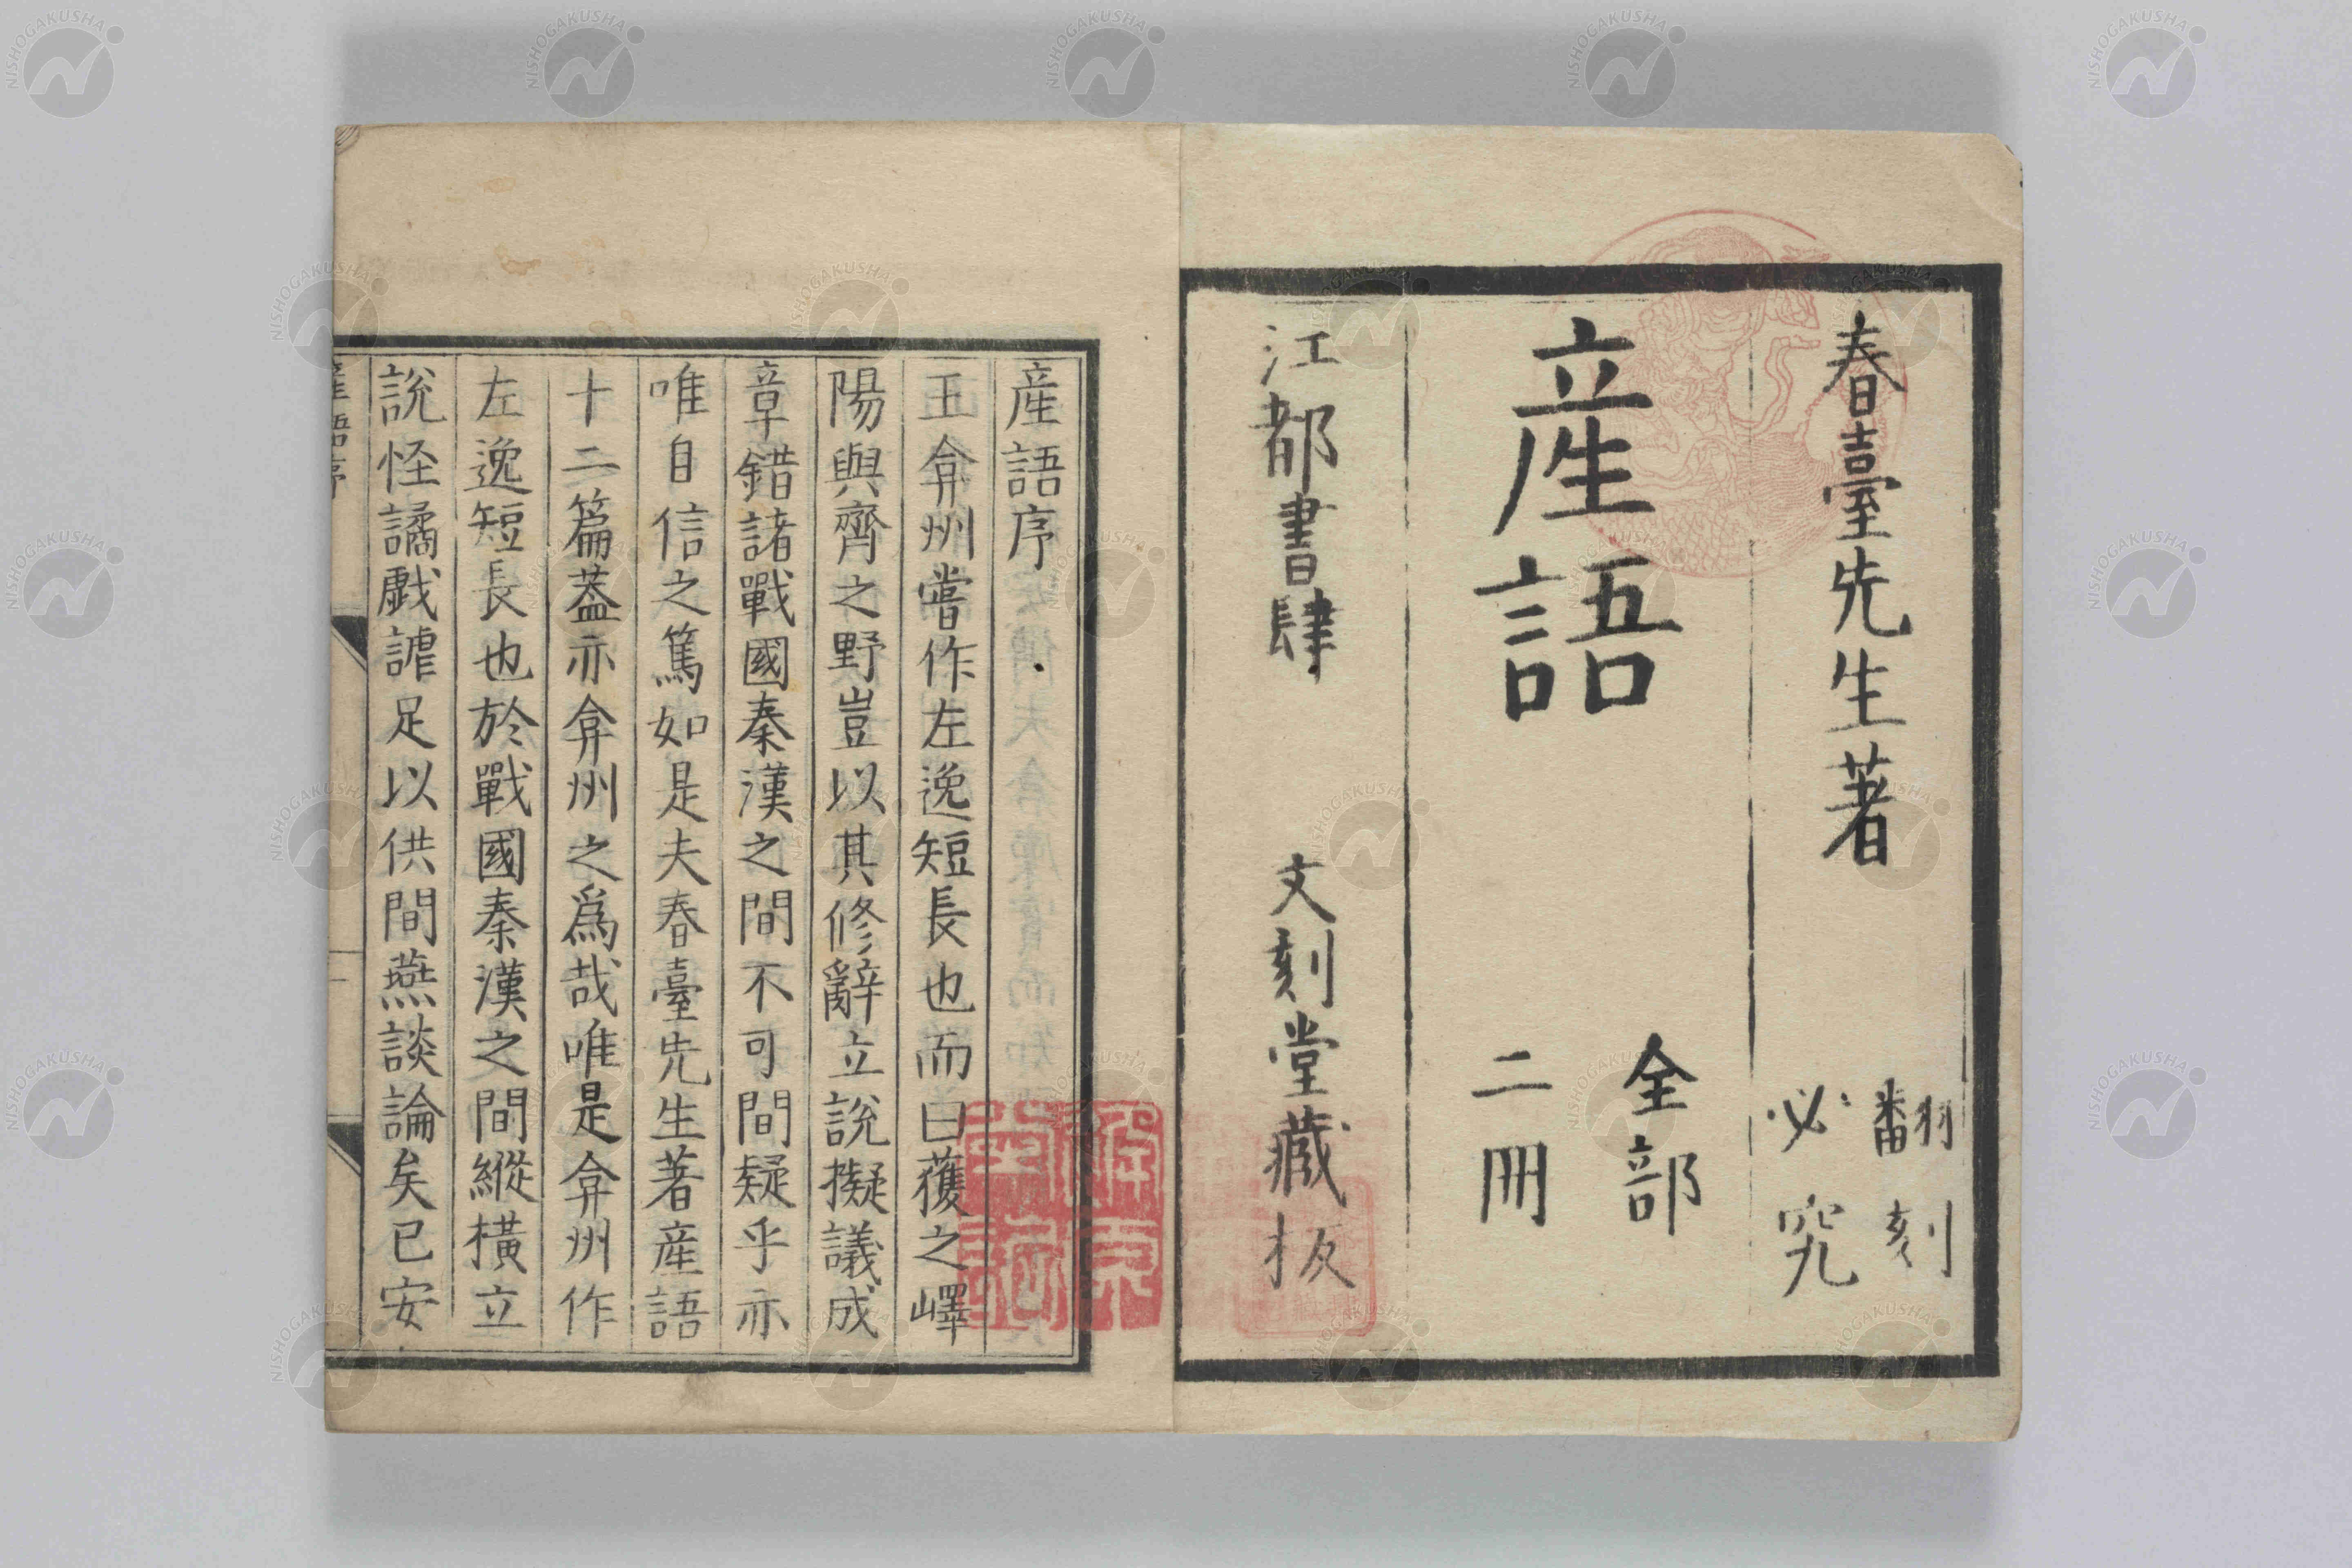 春臺先生著
翻刻
必究
産語
全部
二冊
江都書肆 文刻堂藏板
産語序
王弇州嘗作左逸短長也而曰獲之嶧
陽與齊之野豈以其修辭立說擬議成
章錯諸戰國秦漢之間不可間疑乎亦
唯自信之篤如是夫春臺先生著産語
十二篇蓋亦弇州之爲哉唯是弇州作
左逸短長也於戰國秦漢之間縱橫立
說怪譎戲謔足以供間燕談論矣已安
産語序
一
NISHOGAKUSHA